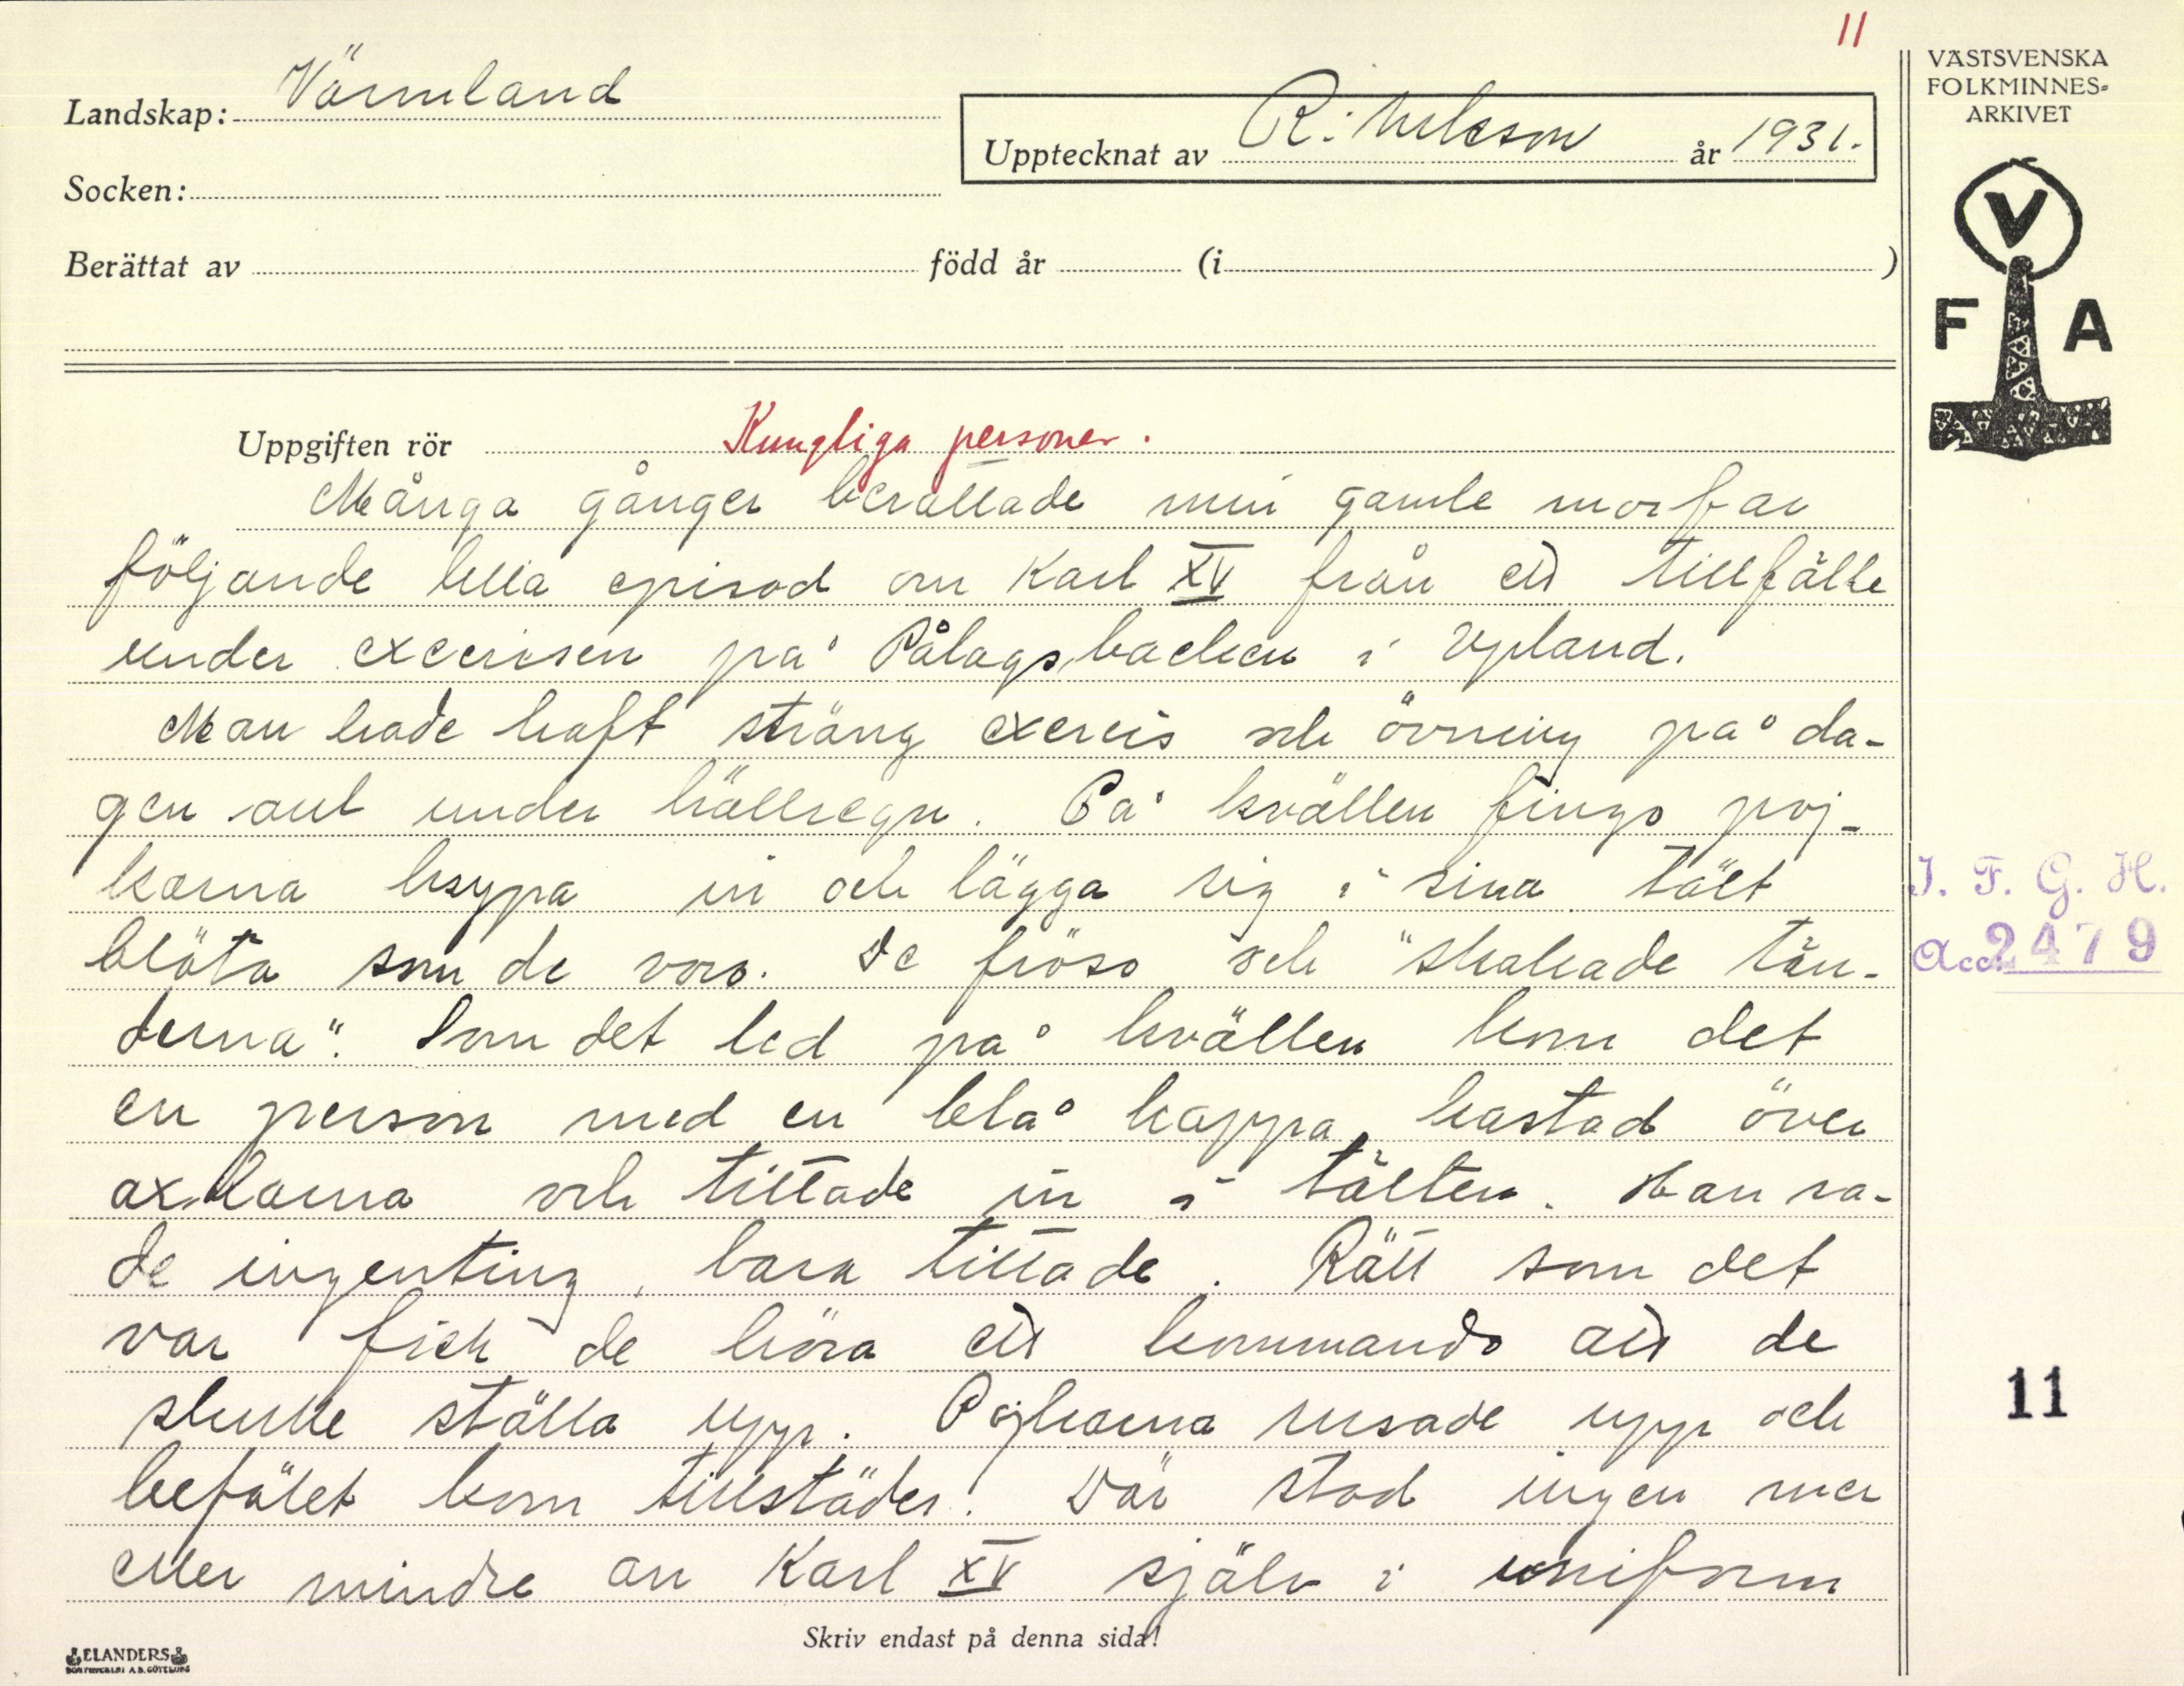 11
VÄSTSVENSKA
FOLKMINNES-
ARKIVET
Landskap: Värmland
Upptecknat av R. Nilsson år 1931.
Socken:
Berättat av född år (i )
V
F A
Uppgiften rör Kungliga personer.
Många gånger berättade min gamle morfar
följande lilla episod om Karl XV från ett tillfälle
under excersisen på Pålagsbacken i Uppland.
Man hade haft sträng exercis och övning på da-
gen allt under hällregn. På kvällen fingo poj-
karna krypa in och lägga sig i sina tält
blöta som de voro. De fröso och "skakade tän-
derna". Som det led på kvällen kom det
en person med en blå kappa, kastad över
axlarna och tittade in i tälten. Han sa-
de ingenting, bara tittade. Rätt som det
var fick de höra ett kommando att de
skulle ställa upp. Pojkarna rusade upp och
befälet kom tillstädes! Där stod ingen mer
eller mindre än Karl XV själv i uniform
J. F. G. H.
Acc. 2479
11
Skriv endast på denna sida!
ELANDERS
BOKTRYCKERI A.B. GÖTEBORG